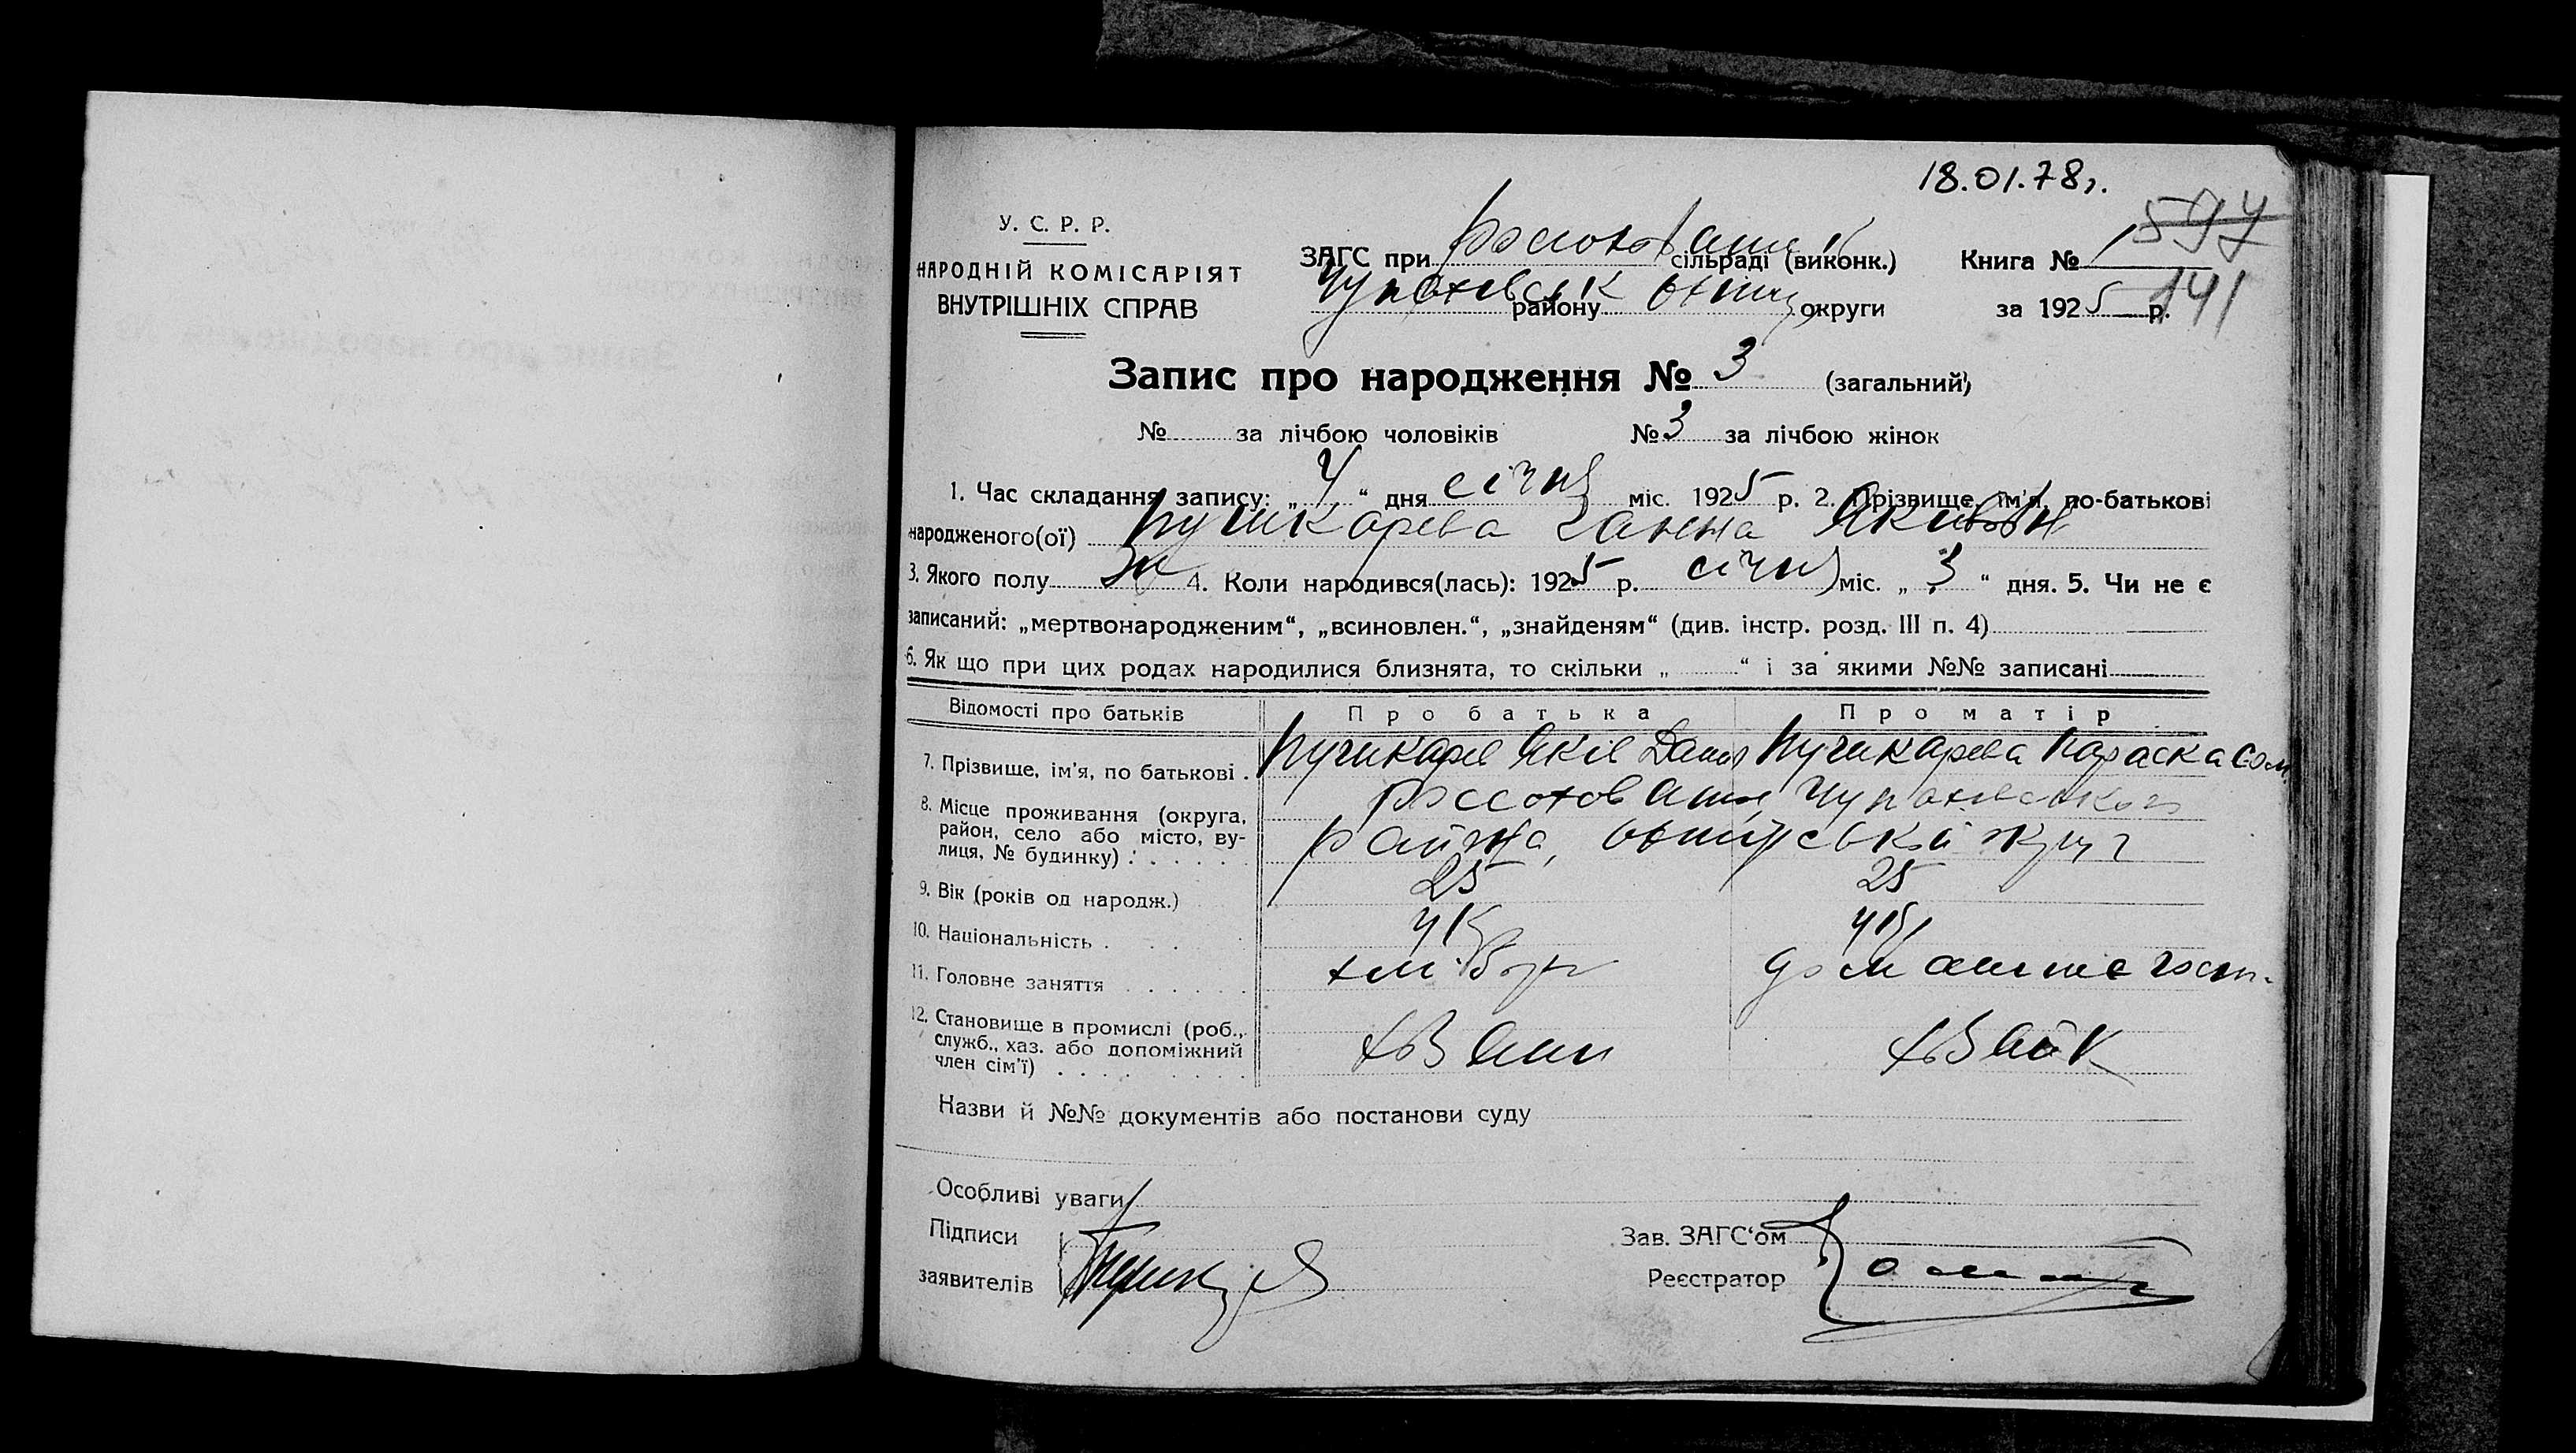 18.01.78 г.
597
У. С. Р. Р.
ЗАГС при сільраді (виконк.) Книга № 1
НАРОДНІЙ КОМІСАРІЯТ
141
ВНУТРІШНІХ СПРАВ
району округи за 1925 р.
Запис про народження № 3 (загальний)
№ за лічбою чоловіків № 3 за лічбою жінок
1. Час складання запису: „4“ дня січня міс. 1925 р. 2. Прізвище, ім'я, по-батькові
народженого(ої) Пушкарева Ганна Яківовн
3. Якого полу ж 4. Коли народився(лась): 1925 р. січня міс. „3“ дня. 5. Чи не є
записаний: „мертвонародженим“, „всиновлен.“, „знайденям“ (див. інстр. розд. III п. 4)
6. Як що при цих родах народилися близнята, то скільки „ “ і за якими №№ записані
Відомості про батьків Про батька Про матір
7. Прізвище, ім'я, по батькові . Пушкарев Яків Данил Пушкарева Параска Сам.
8. Місце проживання (округа,
район, село або місто, ву-
лиця, № будинку) . района,
9. Вік (років од народж.) 25 25
10. Національність . ук ук
11. Головне заняття хлібор домашнє госп.
12. Становище в промислі (роб.,
служб., хаз. або допоміжний
член сім'ї)
Назви й №№ документів або постанови суду
Особливі уваги
Підписи
заявителів
Зав. ЗАГС‘ом
Реєстратор